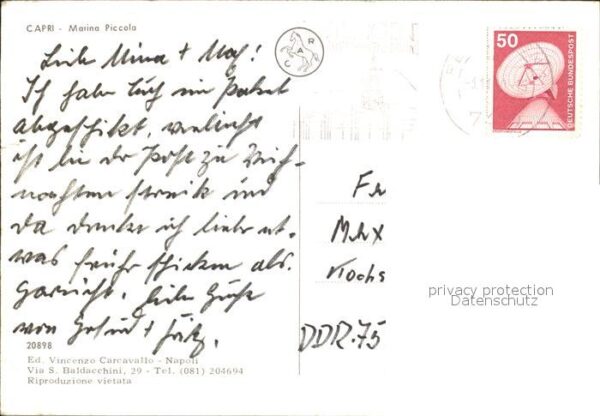 CAPRI - Marina Piccola
Liebe Mina + Max!
Ich habe Euch ein Paket
abgeschikt, vieleicht
ist in der Post zu Weih-
nachten streik und
da denke ich lieber et-
was früher schicken als
garnicht. Liebe Grüße
von +
20898
Ed. Vincenzo Carcavallo - Napoli
Via S. Baldacchini, 29 - Tel. (081) 204694
Riproduzione vietata
C A R
50
DEUTSCHE BUNDESPOST
Max
DDR-75
privacy protection
Datenschutz